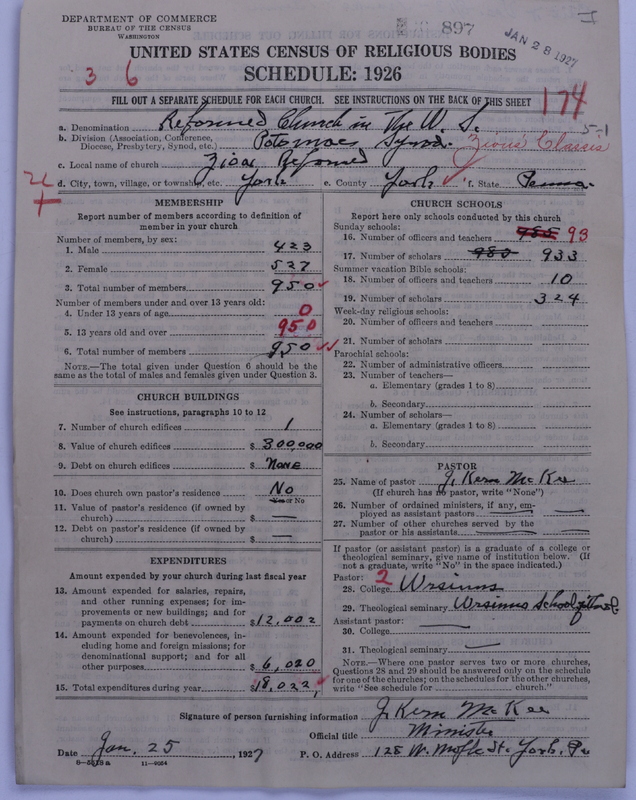 DEPARTMENT OF COMMERCE
BUREAU OF THE CENSUS
WASHINGTON
897
JAN 28 1927
UNITED STATES CENSUS OF RELIGIOUS BODIES
SCHEDULE: 1926
3 6
174
FILL OUT A SEPARATE SCHEDULE FOR EACH CHURCH. SEE INSTRUCTIONS ON THE BACK OF THIS SHEET
a. Denomination Reformed Church in The U. S.
5-1
b. Division (Association, Conference, Diocese, Presbytery, Synod, etc.) Potomac Synod. Zions' Classis
c. Local name of church Zion Reformed
d. City, town, village, or township, etc. York e. County York f. State Penna.
MEMBERSHIP
Report number of members according to definition of
member in your church
Number of members, by sex:
1. Male 423
2. Female 527
3. Total number of members 950
Number of members under and over 13 years old:
4. Under 13 years of age 0
5. 13 years old and over 950
6. Total number of members 950
NOTE.—The total given under Question 6 should be
same as the total of males and females given under Question 3.
CHURCH BUILDINGS
See instructions, paragraphs 10 to 12
7. Number of church edifices 1
8. Value of church edifices $ 300,000
9. Debt on church edifices $ NONE
10. Does church own pastor's residence No
Yes or No
11. Value of pastor's residence (if owned by
church) $ —
12. Debt on pastor's residence (if owned by
church) $ —
EXPENDITURES
Amount expended by your church during last fiscal year
13. Amount expended for salaries, repairs,
and other running expenses; for im-
provements or new buildings; and for
payments on church debt $ 12,002
14. Amount expended for benevolences, in-
cluding home and foreign missions; for
denominational support; and for all
other purposes $ 6,020
15. Total expenditures during year $ 18,022
CHURCH SCHOOLS
Report here only schools conducted by this church
Sunday schools:
16. Number of officers and teachers 93
17. Number of scholars 983 933
Summer vacation Bible schools:
18. Number of officers and teachers 10
19. Number of scholars 324
Week-day religious schools:
20. Number of officers and teachers
21. Number of scholars
Parochial schools:
22. Number of administrative officers
23. Number of teachers—
a. Elementary (grades 1 to 8)
b. Secondary
24. Number of scholars—
a. Elementary (grades 1 to 8)
b. Secondary
PASTOR
25. Name of pastor J. Kern McKee
(If church has no pastor, write "None")
26. Number of ordained ministers, if any, em-
ployed as assistant pastors —
27. Number of other churches served by the
pastor or his assistants —
If pastor (or assistant pastor) is a graduate of a college or
theological seminary, give name of institution below. (If
not a graduate, write "No" in the space indicated.)
Pastor: 2
28. College Ursinus
29. Theological seminary Ursinus School of Theol
Assistant pastor:
30. College —
31. Theological seminary —
NOTE.—Where one pastor serves two or more churches,
Questions 28 and 29 should be answered only on the schedule
for one of the churches; on the schedules for the other churches,
write "See schedule for church."
Signature of person furnishing information J. Kern McKee
Official title Minister
Date Jan. 25, 1927 P. O. Address 128 W. St. York, Pa
11—9264